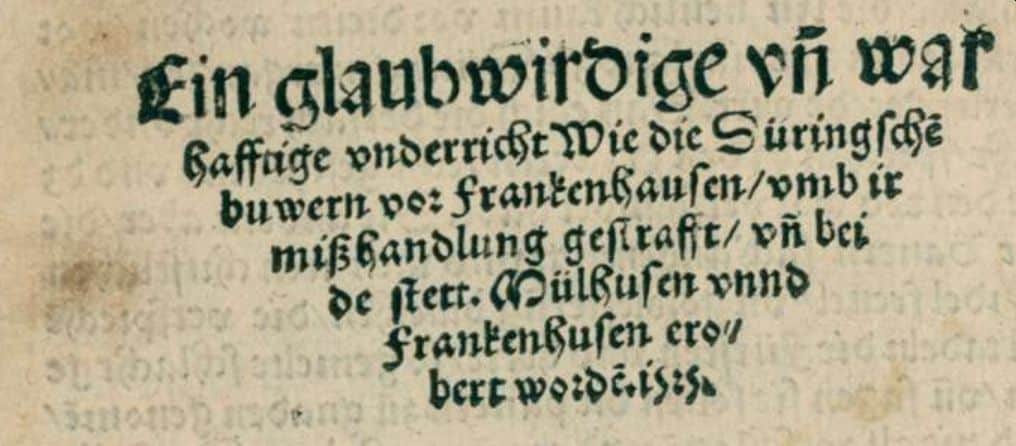 Ein glaubwirdige vñ war
hafftige vnderricht Wie die Düringschẽ
buwern vor Frankenhausen/vmb ir
mißhandlung gestrafft/ vñ bei
de stett. Mülhusen vnnd
Frankenhusen ero//
bert wordẽ. 1525.